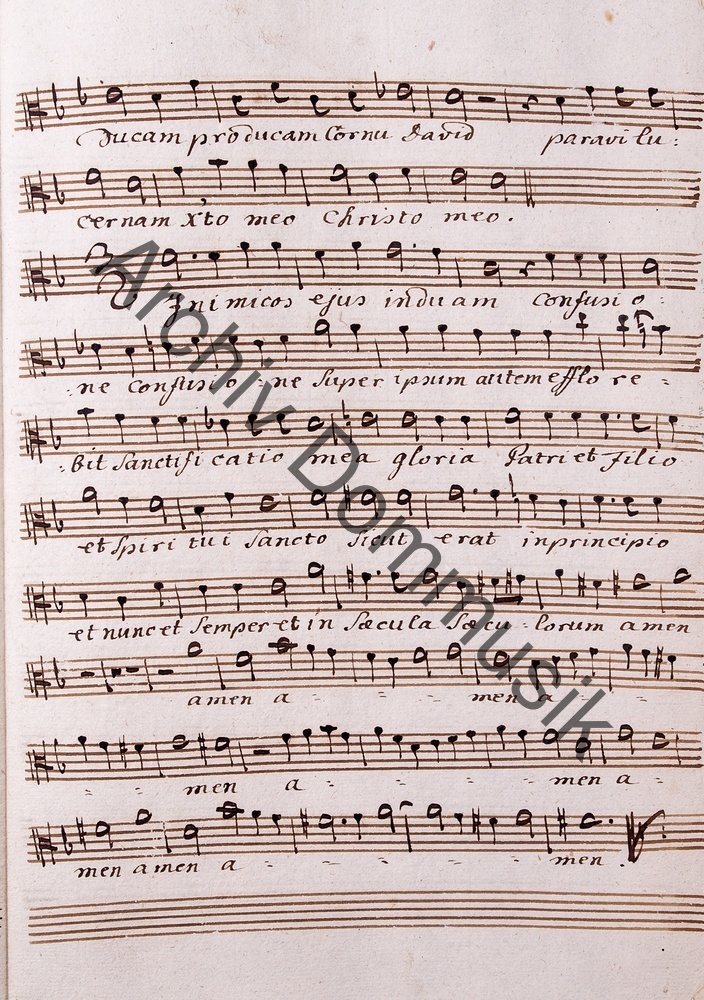 Ducam producam Cornu david paravi lu:
cernam Xto meo Christo meo.
Inimicos ejus induam confusio:
:ne confusio:ne super ipsum autem efflore=
:bit Sanctifi catio mea gloria Patri et Filio
et Spiri tui Sancto Sicut erat in principio
et nunc et Semper et in Sæcula Sæcu:lorum amen
amen a - - - - men a -
- - men a - - - - men a -
men amen a - - - - men.
Archiv Dommusik